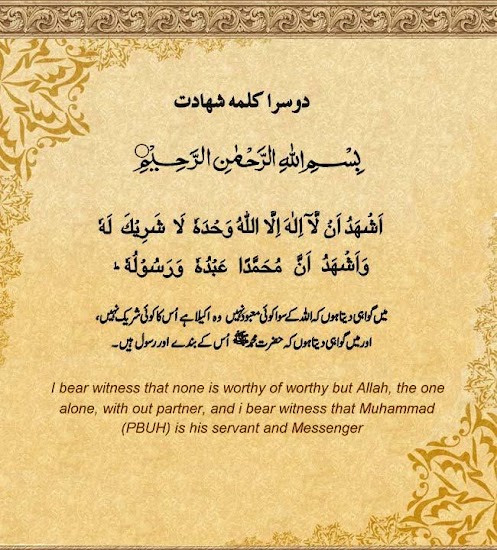 دوسرا کلمہ شہادت
بِسْمِ اللهِ الرَّحْمٰنِ الرَّحِيْمِ
اَشْهَدُ اَنْ لَّآ اِلٰهَ اِلَّا اللهُ وَحْدَهٗ لَا شَرِيْكَ لَهٗ
وَاَشْهَدُ اَنَّ مُحَمَّدًا عَبْدُهٗ وَرَسُوْلُهٗ ؕ
میں گواہی دیتا ہوں کہ اللہ کے سوا کوئی معبود نہیں وہ اکیلا ہے اُس کا کوئی شریک نہیں،
اور میں گواہی دیتا ہوں کہ حضرت محمد ﷺ اُس کے بندے اور رسول ہیں۔
I bear witness that none is worthy of worthy but Allah, the one
alone, with out partner, and i bear witness that Muhammad
(PBUH) is his servant and Messenger